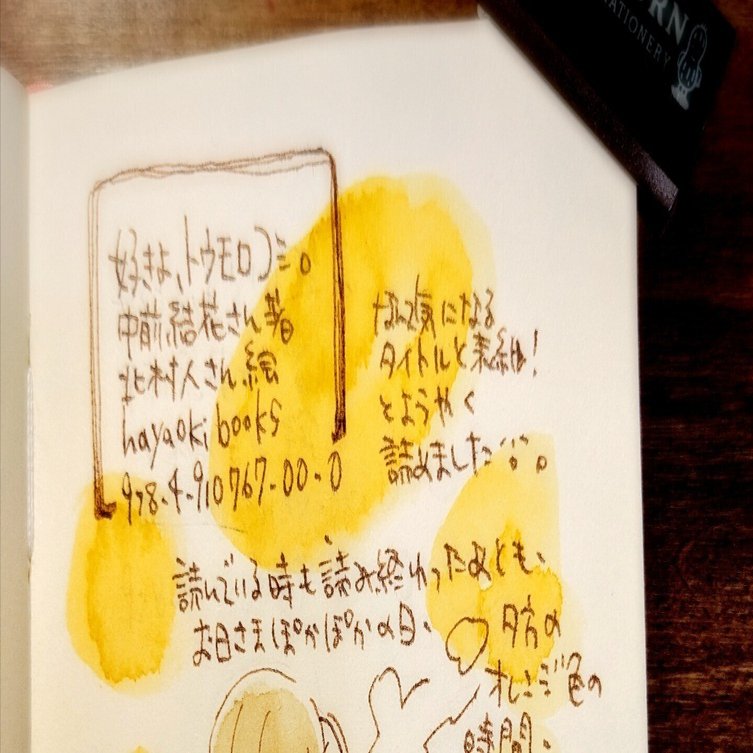 ORN
TATIONERY
好きよ、トウモロコシ。
中前結花さん著
北村人さん絵
hayaoki books
978-4-910767-00-0
気になる
タイトルと表紙!
とようやく
読めました
読んでいる時も読み終わったあとも、
お日さまぽかぽかの日、
夕方の
オレンジ色の
時間、